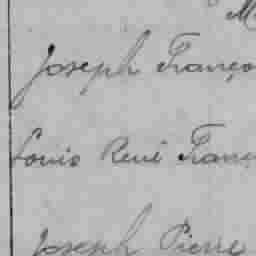 M
Joseph Franço
Louis René Franç
Joseph Pierre